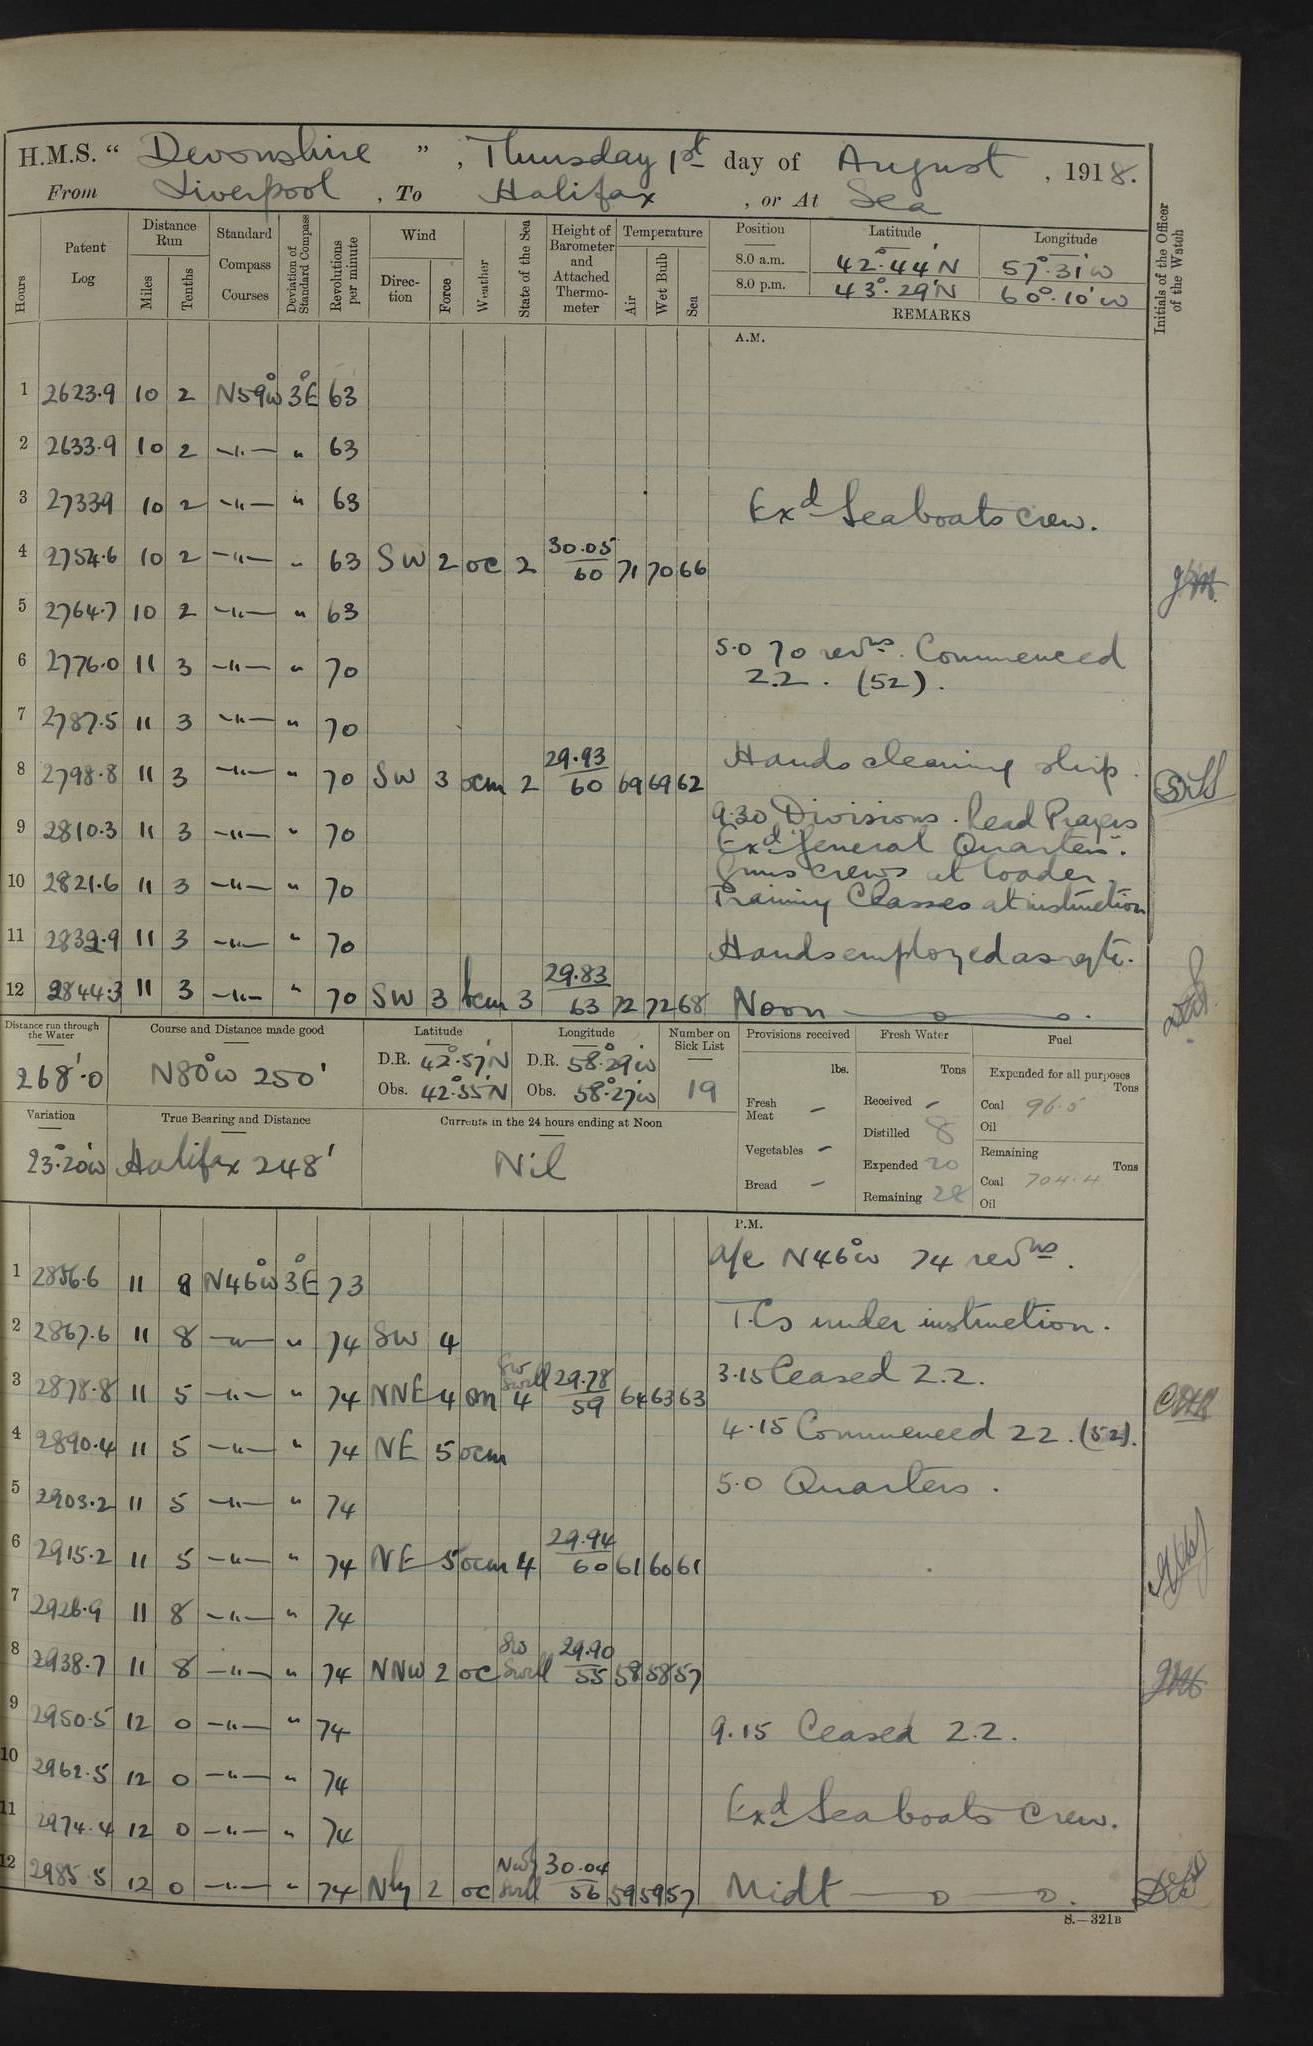 H.M.S. “ Devonshire ” , Thursday 1st day of August , 1918.
From Liverpool , To Halifax , or At Sea
Hours Patent Log Distance Run Miles Tenths Standard Compass Courses Deviation of Standard Compass Revolutions per minute Wind Direc-tion Force Weather State of the Sea Height of Barometer and Attached Thermo-meter Temperature Air Wet Bulb Sea Position Latitude Longitude Initials of the Officer of the Watch
8.0 a.m. 42°.44'N 57°.31'W
8.0 p.m. 43°.29'N 60°.10'W
REMARKS
A.M.
1 2623.9 10 2 N59°W 3°E 63
2 2633.9 10 2 —"— " 63
3 27339 10 2 —"— " 63 Exd Seaboats crew.
4 2754.6 10 2 —"— " 63 SW 2 oc 2 30.05 60 71 70 66
5 2764.7 10 2 —"— " 63
6 2776.0 11 3 —"— " 70 5.0 70 revns. Commenced
2.2. (52).
7 2787.5 11 3 —"— " 70
8 2798.8 11 3 —"— " 70 SW 3 ocm 2 29.93 60 69 69 62 Hands cleaning ship.
9 2810.3 11 3 —"— " 70 9.30 Divisions. Read Prayers
Exd General Quarters.
10 2821.6 11 3 —"— " 70 Guns crews at loader
Training Classes at instruction
11 2832.9 11 3 —"— " 70 Hands employed as reqte.
12 2844.3 11 3 —"— " 70 SW 3 bcm 3 29.83 63 72 72 68 Noon
Distance run through the Water Course and Distance made good Latitude Longitude Number on Sick List Provisions received Fresh Water Fuel
268'.0 N80°W 250' D.R. 42°.57'N D.R. 58°.29'W 19 lbs. Tons Expended for all purposes Tons
Obs. 42°.55'N Obs. 58°.27'W Fresh Meat — Received — Coal 96.5
Variation True Bearing and Distance Currents in the 24 hours ending at Noon Distilled 8 Oil
23°.20'W Halifax 248' Nil Vegetables — Expended 20 Remaining Tons
Bread — Remaining 28 Coal 704.4
Oil
P.M.
1 2856.6 11 8 N46°W 3°E 73 a/c N46°W 74 revns.
2 2867.6 11 8 —"— " 74 SW 4 T.Cs under instruction.
3 2878.8 11 5 —"— " 74 NNE 4 om SW Swell 4 29.78 59 64 63 63 3.15 Ceased 2.2.
4 2890.4 11 5 —"— " 74 NE 5 ocm 4.15 Commenced 22. (52).
5 2903.2 11 5 —"— " 74 5.0 Quarters.
6 2915.2 11 5 —"— " 74 NE 5 ocm 4 29.94 60 61 60 61
7 2926.9 11 8 —"— " 74
8 2938.7 11 8 —"— " 74 NNW 2 oc SW Swell 29.90 55 58 58 57
9 2950.5 12 0 —"— " 74 9.15 Ceased 2.2.
10 2962.5 12 0 —"— " 74
11 2974.4 12 0 —"— " 74 Exd Seaboats Crew.
12 2985.5 12 0 —"— " 74 Nly 2 oc Nwly Swell 30.04 56 59 59 57 Midt
S.—321B